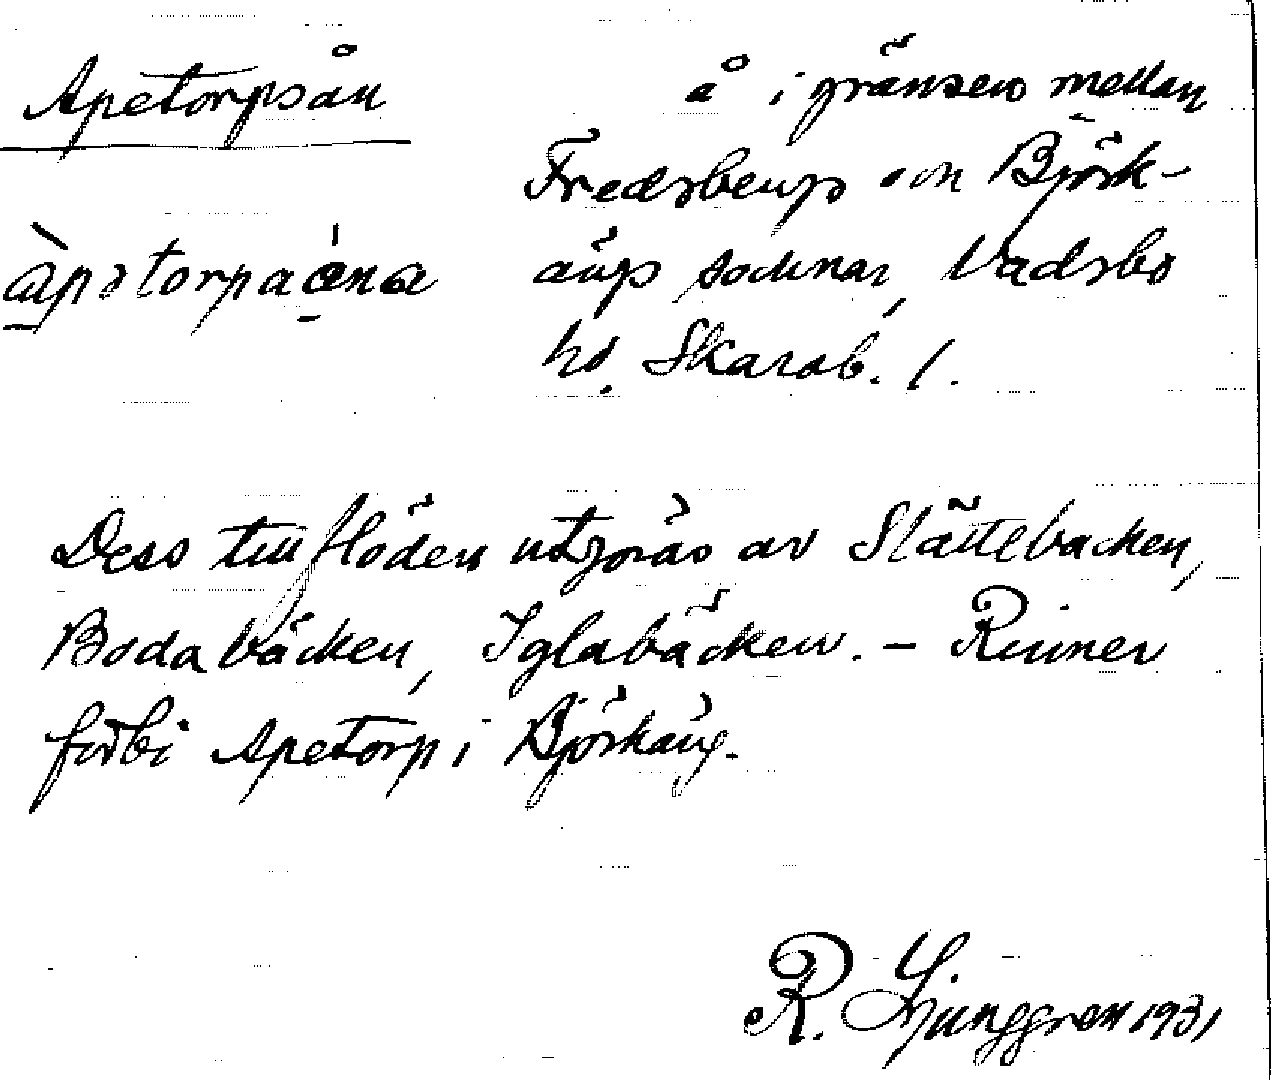 Apetorpsån
å i gränsen mellan
Fredsbergs och Björk-
ängs socknar, Vadsbo
hd. Skarab. l.
àpətorpaána
Dess tillflöden utgöras av Slättebäcken,
Bodabäcken, Iglabäcken. – Rinner
förbi Apetorp i Björkäng.
R. Ljunggren 1931